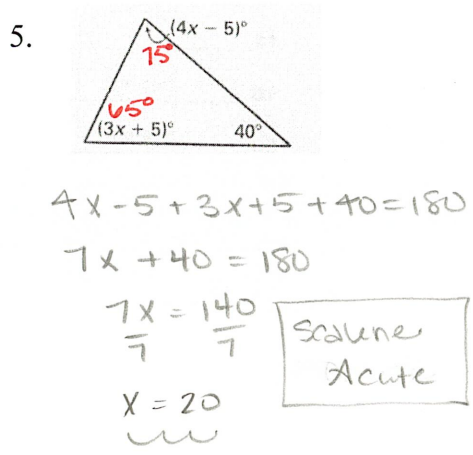 5.
(4x − 5)°
75°
65°
(3x + 5)°
40°
4x-5+3x+5+40=180
7x+40=180
7x/7 = 140/7
x = 20
Scalene
Acute